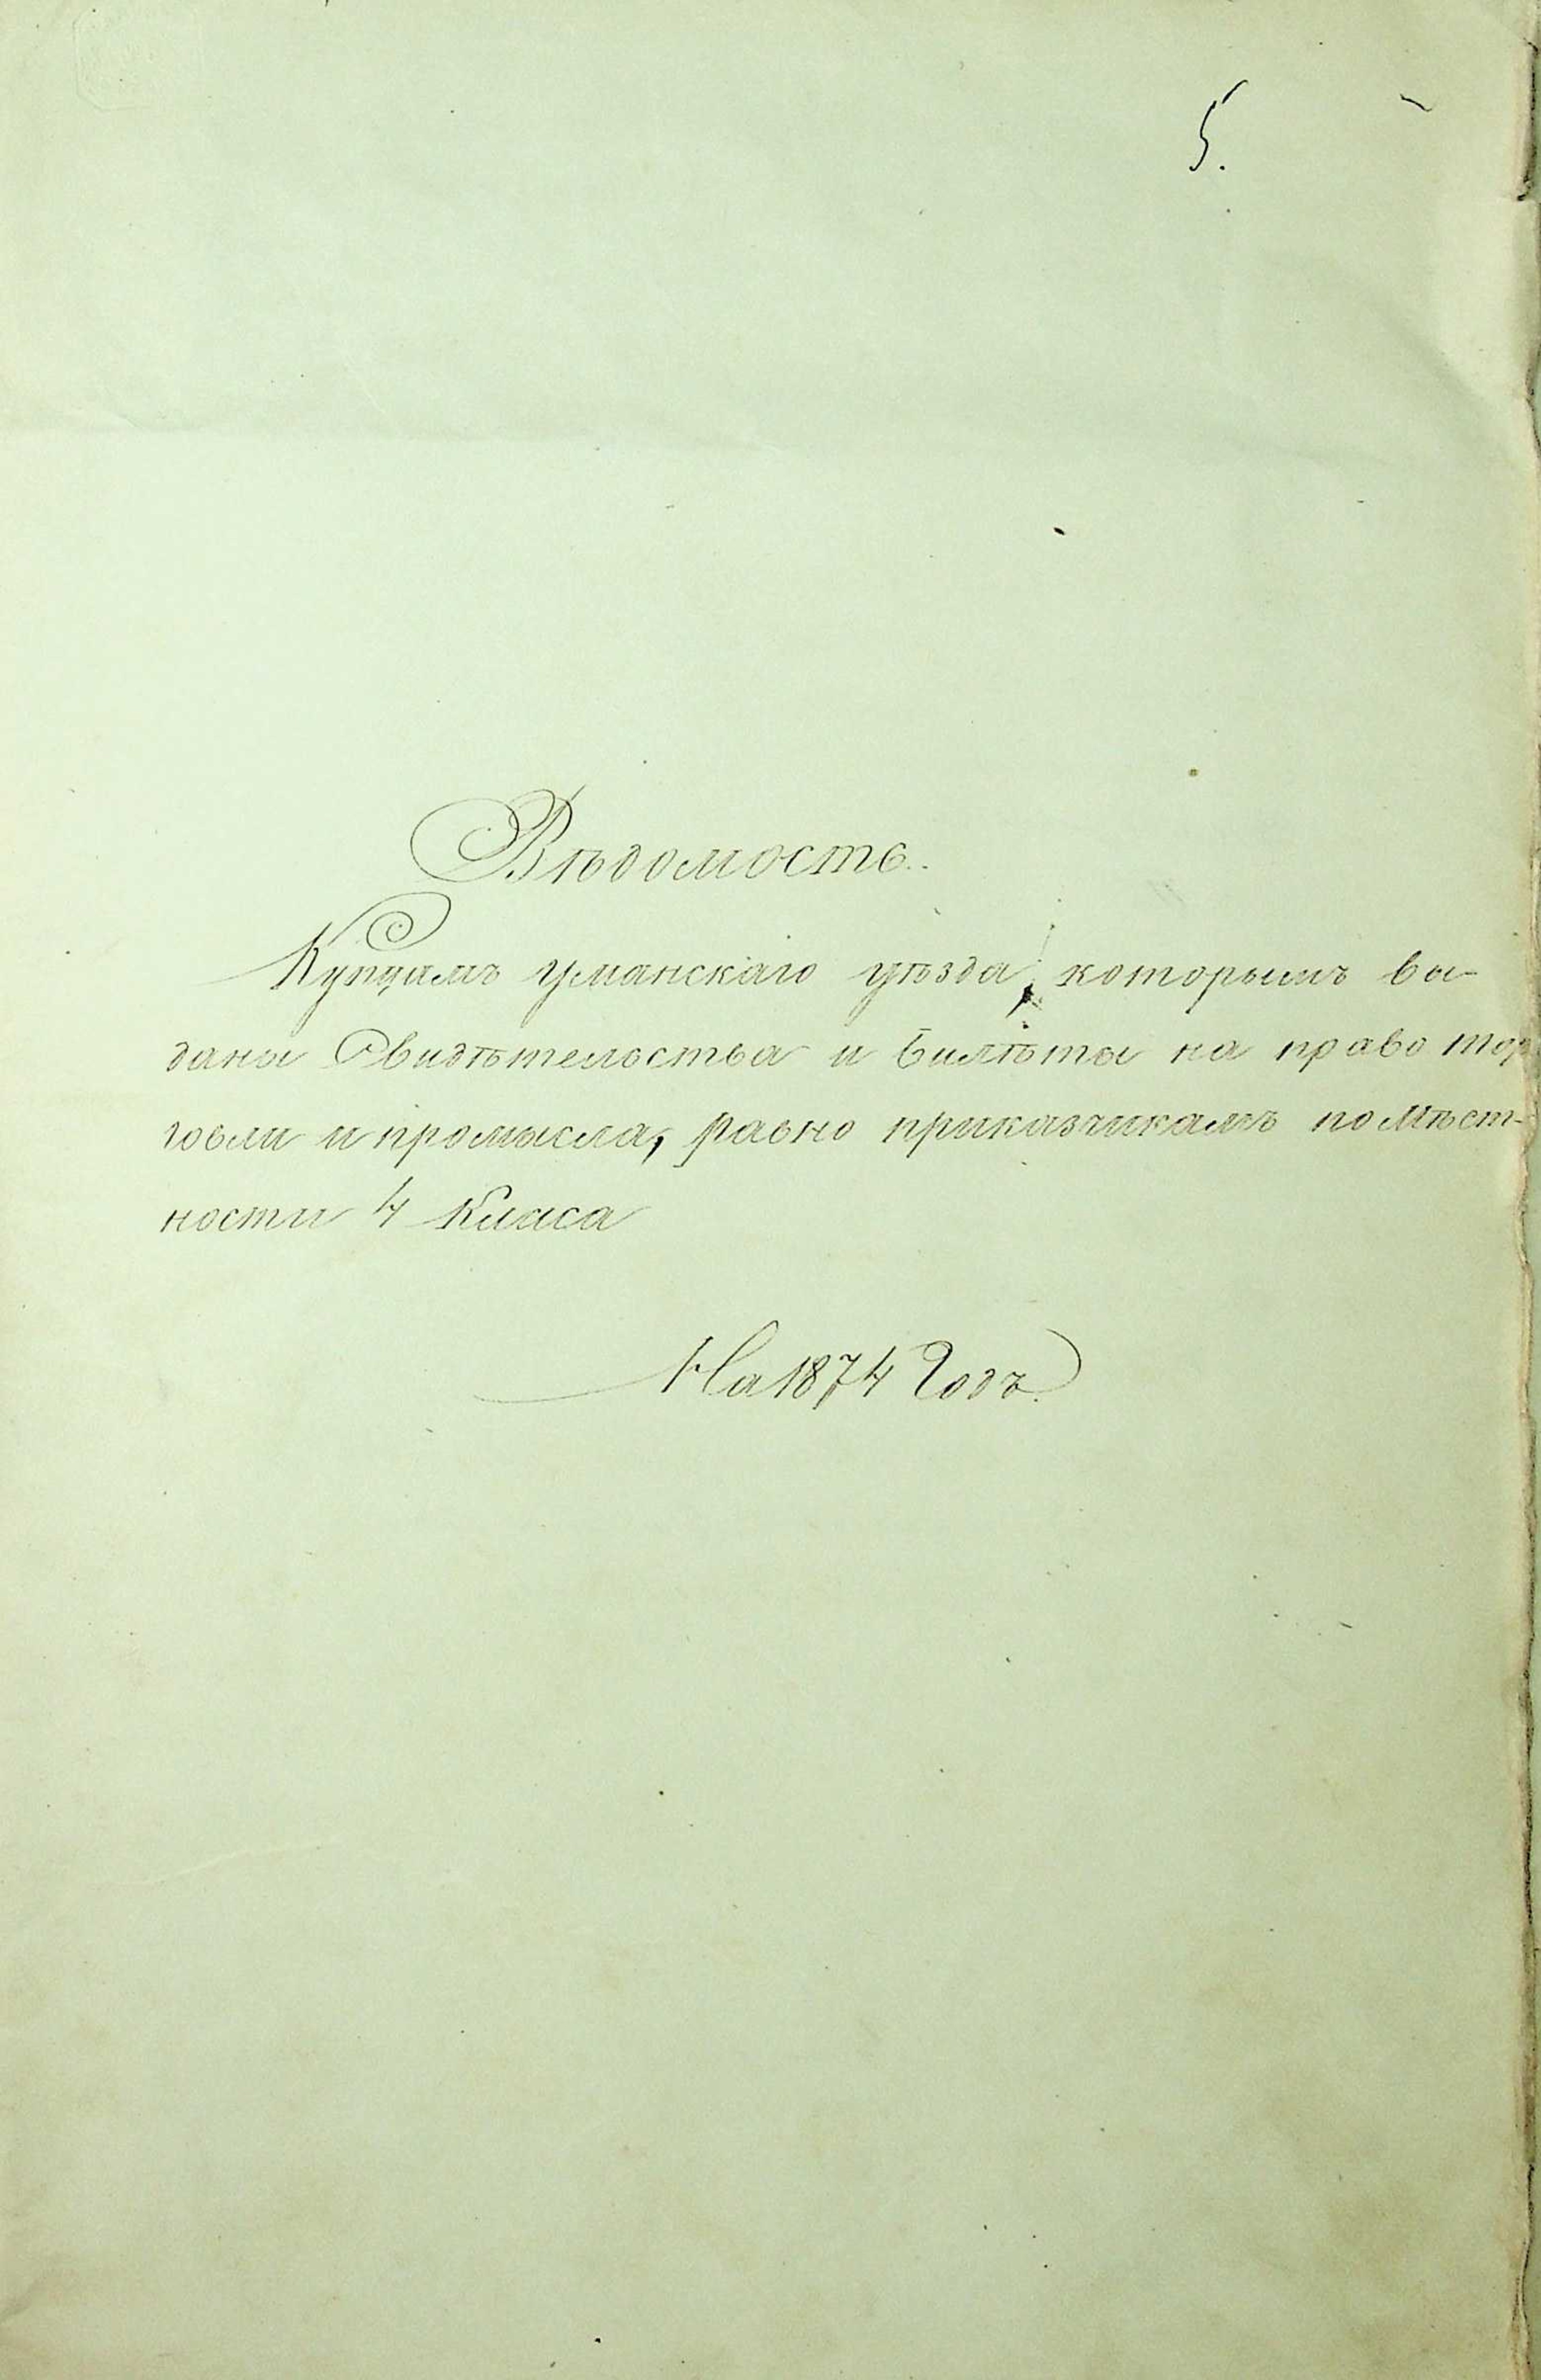 5.
Вѣдомость.
Купцамъ Уманскаго уѣзда, которымъ вы-
даны Свидѣтельства и билѣты на право тор
говли и промысла, равно приказчикамъ по мѣст-
ности 4 Класа
На 1874 Годъ.